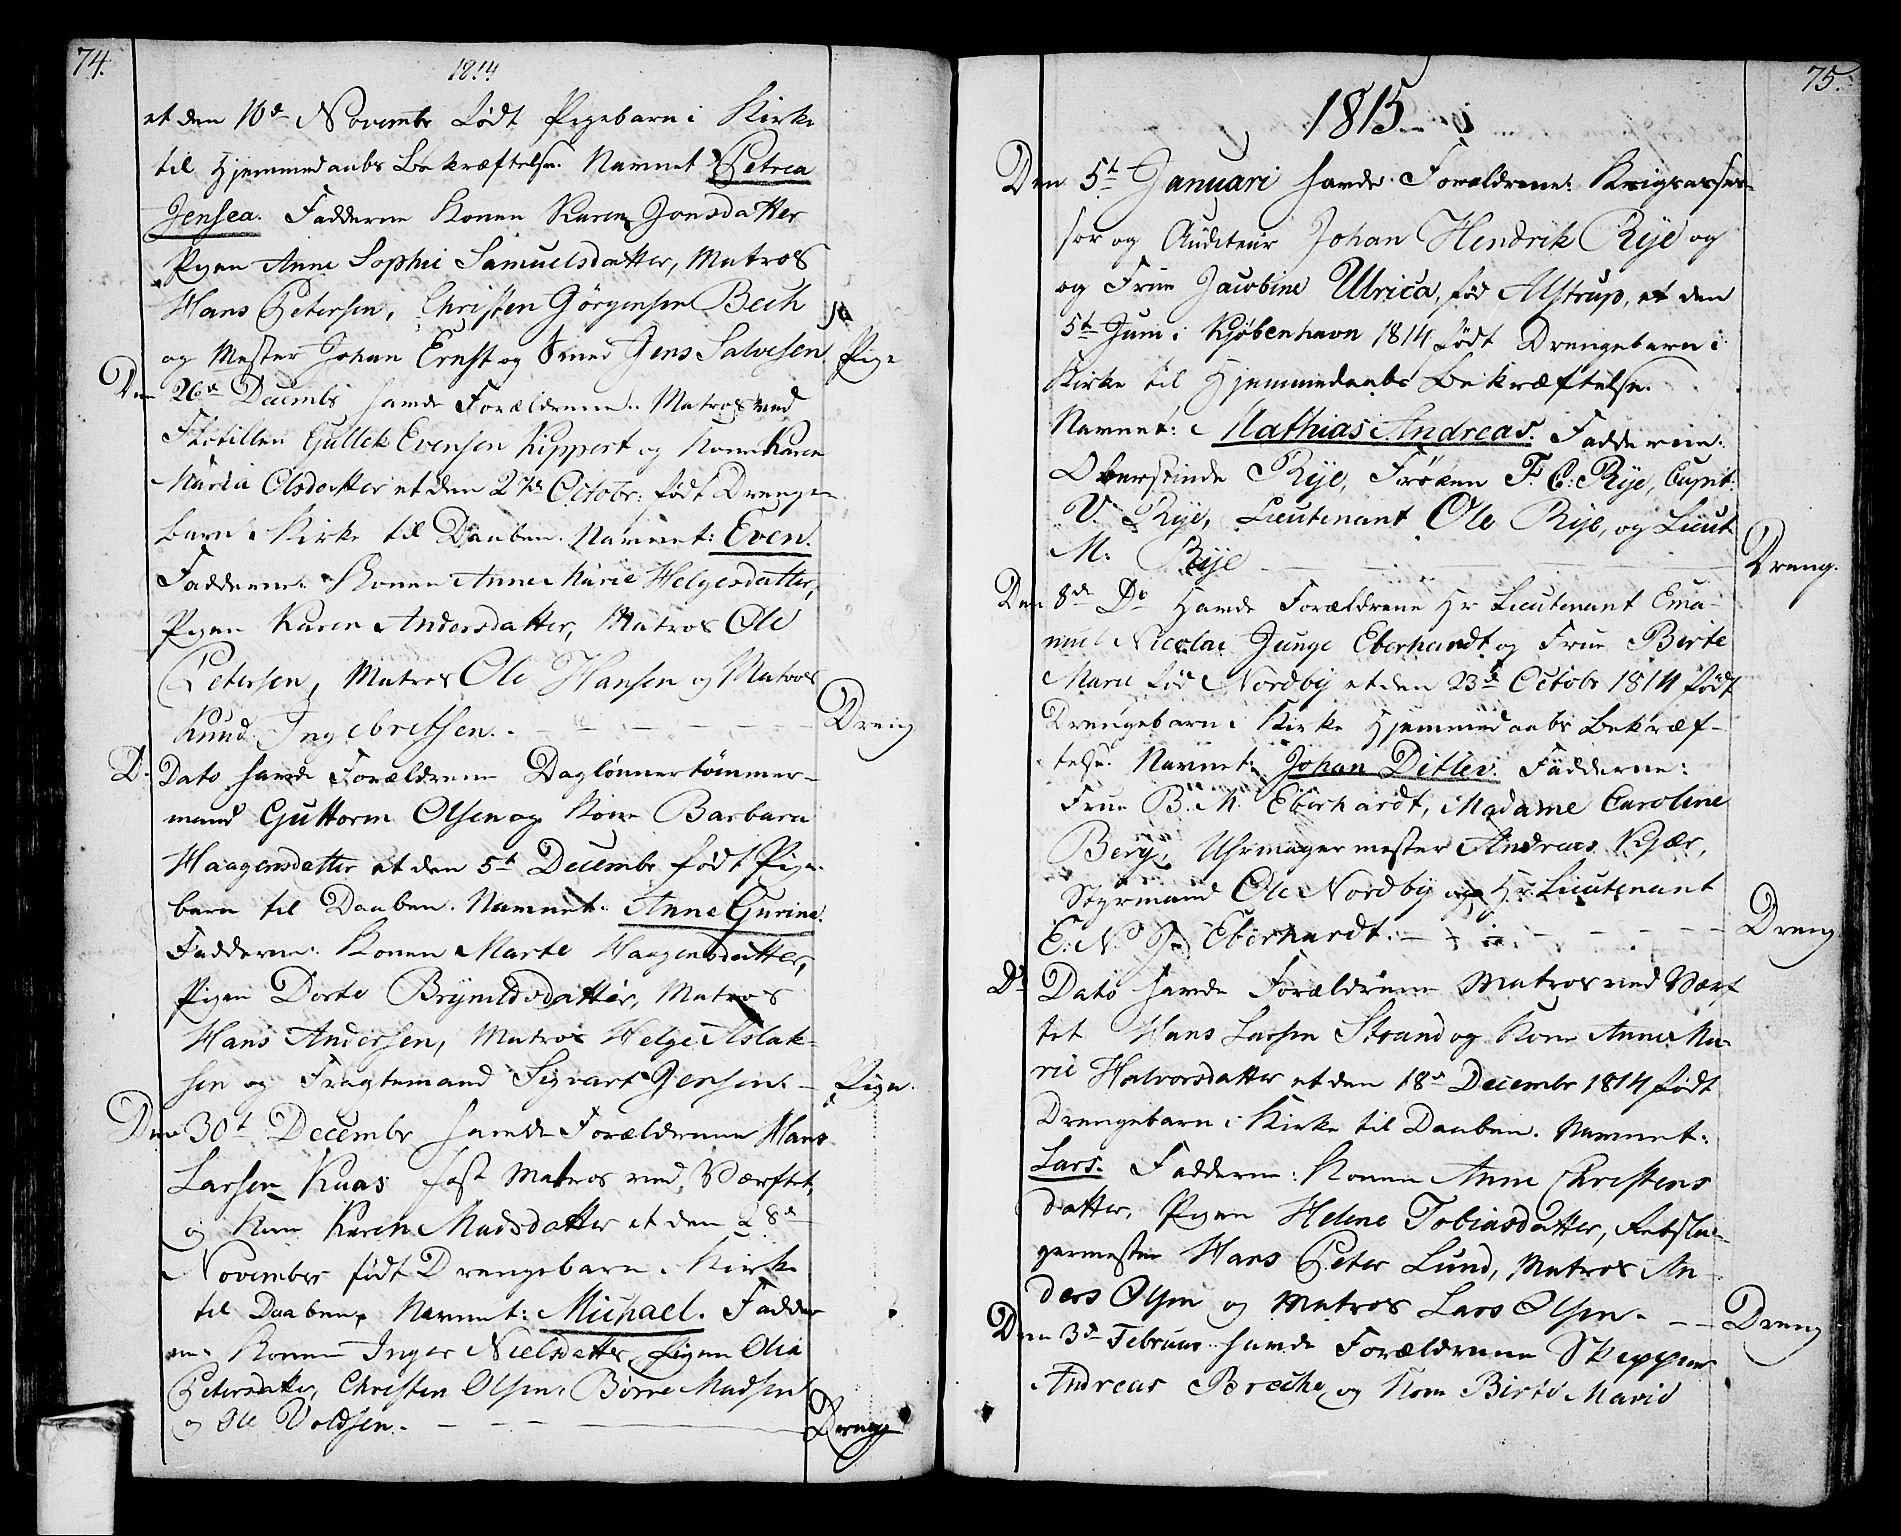 74.
1814
et den 16de Novembr født Pigebarn i Kirke
til Hjemmedaabs Bekræftelse. Navnet Petrea
Jensea. Fadderne Konen Karen Jonsdatter
Pigen Anne Sophie Samuelsdatter, Matros
Hans Petersen, Christen Görgensen Bech
og Mester Johan Ernst og Smed Jens Salvesen
Pige
Den 26de Decembr havde Forældrene: Matros ved
Flotillen Gullek Evensen Kippert og Kone Karen
Maria Olsdatter et den 27de Octobr: født Drenge-
barn i Kirke til Daaben. Navnet: Even.
Fadderne: Konen Anne Marie Helgesdatter,
Pigen Karen Andersdatter, Matros Ole
Petersen, Matros Ole Hansen og Matros
Knud Ingebretsen.
Dreng
D: Dato havde Forældrene Daglønnertømmer-
mand Guttorm Olsen og Kone Barbara
Haagensdatter et den 5te Decembr født Pige-
barn til Daaben. Navnet: Anne Gurine.
Fadderne: Konen Marte Haagensdatter,
Pigen Dorte Brynildsdatter, Matros
Hans Andersen, Matros Helge Aslak-
sen og Fragtemand Sigvart Jensen.
Pige.
Den 30te Decembr havde Forældrene Hans
Larsen Kaas fast Matros ved Værftet,
og Kone Karen Madsdatter et den 28de
November født Drengebarn i Kirke
til Daaben, Navnet: Michael. Fadder
ne: Konen Inger Nielsdatter, Pigen Olia
Petersdatter, Christen Olsen, Børre Madsen
og Ole Voldsen.
Dreng
75.
1815
Den 5te Januari havde Forældrene: Krigsasses-
sor og Auditeur Johan Hendrik Rye og
og Frue Jacobine Ulrica, fød Alstrup, et den
5te Juni i Kjøbenhavn 1814 født Drengebarn i
Kirke til Hjemmedaabs Bekræftelse.
Navnet: Mathias Andreas. Fadderne:
Oberstinde Rye, Frøken F. C. Rye, Capit:
V. Rye, Lieutenant Ole Rye, og Lieut
M: Rye
Dreng.
Den 8de Do Havde Forældrene Hr Lieutenant Ema-
nuel Nicolai Junge Eberhardt og Frue Birte
Marie fød Nordby et den 23de Octobr 1814 født
Drengebarn i Kirke Hjemmedaabs Bekræf-
telse. Navnet: Johan Ditlev. Fadderne:
Frue B. M. Eberhardt, Madame Caroline
Berg, Uhrmagermester Andreas Kjær,
Styrmand Ole Nordby og Hr Lieutenant
E: N. J. Eberhardt.
Dreng
D: Dato havde Forældrene Matros ved Værf
tet Hans Larsen Strand og Kone Anne Ma-
rie Halvorsdatter et den 18de Decembr 1814 født
Drengebarn i Kirke til Daaben. Navnet:
Lars. Fadderne: Konen Anne Christens
datter, Pigen Helene Tobiasdatter, Rebsla-
germester Hans Peter Lund, Matros An-
ders Olsen og Matros Lars Olsen.
Dreng
Den 3de Februar havde Forældrene Skipper
Andreas Brecke og Kone Birte Marie